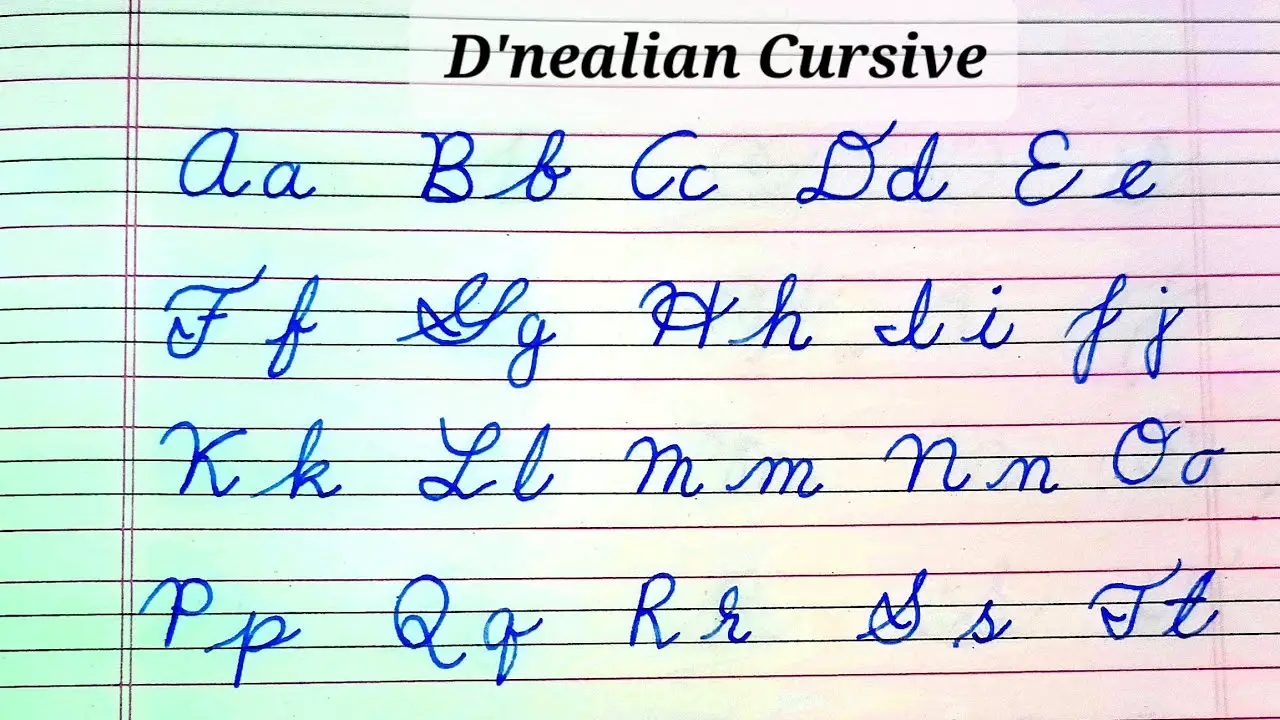 D'nealian Cursive
Aa Bb Cc Dd Ee
Ff Gg Hh Ii Jj
Kk Ll Mm Nn Oo
Pp Qq Rr Ss Tt